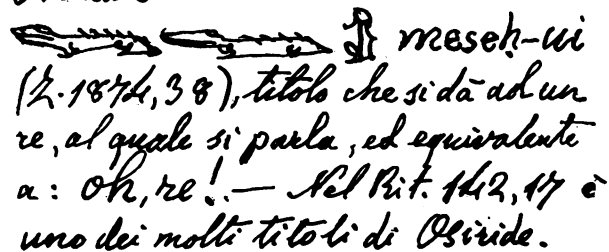 𓆊𓆊𓀭 meseḥ-ui
(Z. 1874, 38), titolo che si dà ad un
re, al quale si parla, ed equivalente
a: oh, re! — Nel Rit. 142, 17 è
uno dei molti titoli di Osiride.